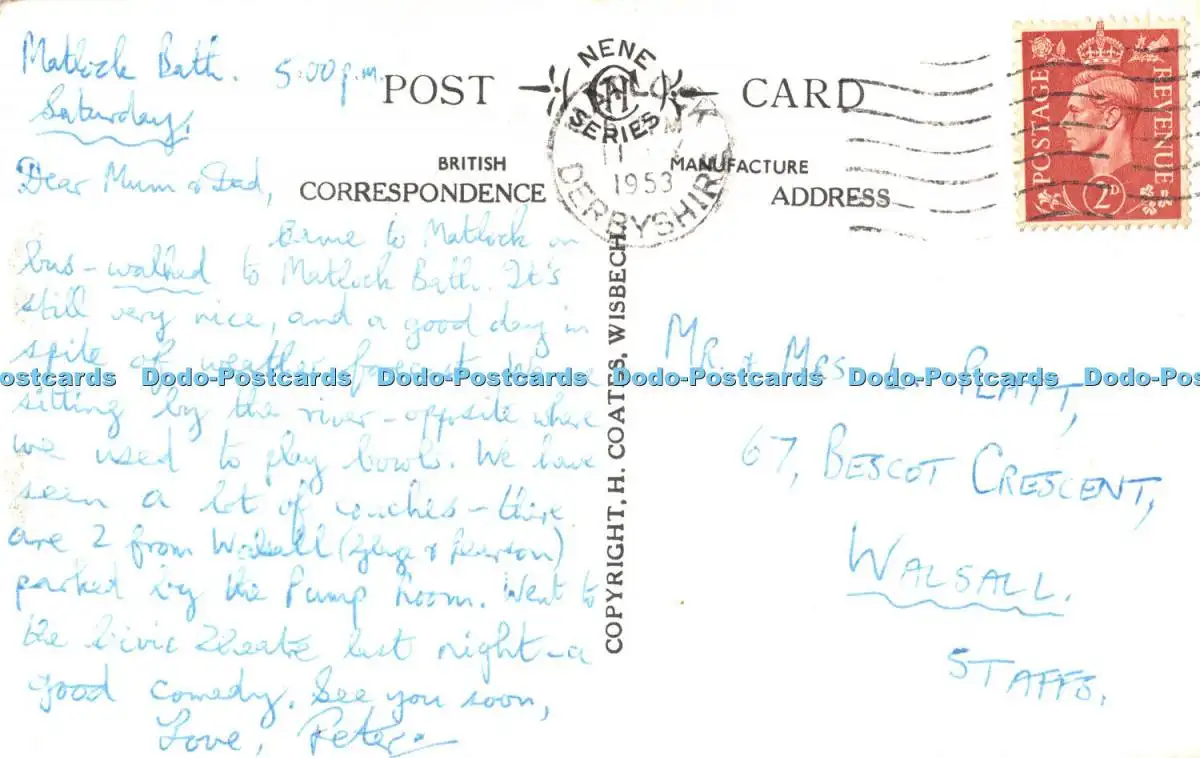 Matlock Bath. 5.00 p.m.
Saturday.
Dear Mum & Dad,
Came to Matlock on
bus - walked to Matlock Bath. It's
still very nice, and a good day in
spite of weather forecast. We are
sitting by the river - opposite where
we used to play bowls. We have
seen a lot of coaches - there
are 2 from Walsall ( & Pearson)
parked by the Pump Room. Went to
the Civic Theatre last night - a
good comedy. See you soon,
Love, Peter.
POST CARD
NENE
SERIES
BRITISH MANUFACTURE
CORRESPONDENCE ADDRESS
MATLOCK
1953
DERBYSHIRE
COPYRIGHT, H. COATES, WISBECH.
POSTAGE REVENUE
2D
MR. & MRS. L. PLATT,
67, BESCOT CRESCENT,
WALSALL.
STAFFS.
ostcards Dodo-Postcards Dodo-Postcards Dodo-Postcards Dodo-Postcards Dodo-Post